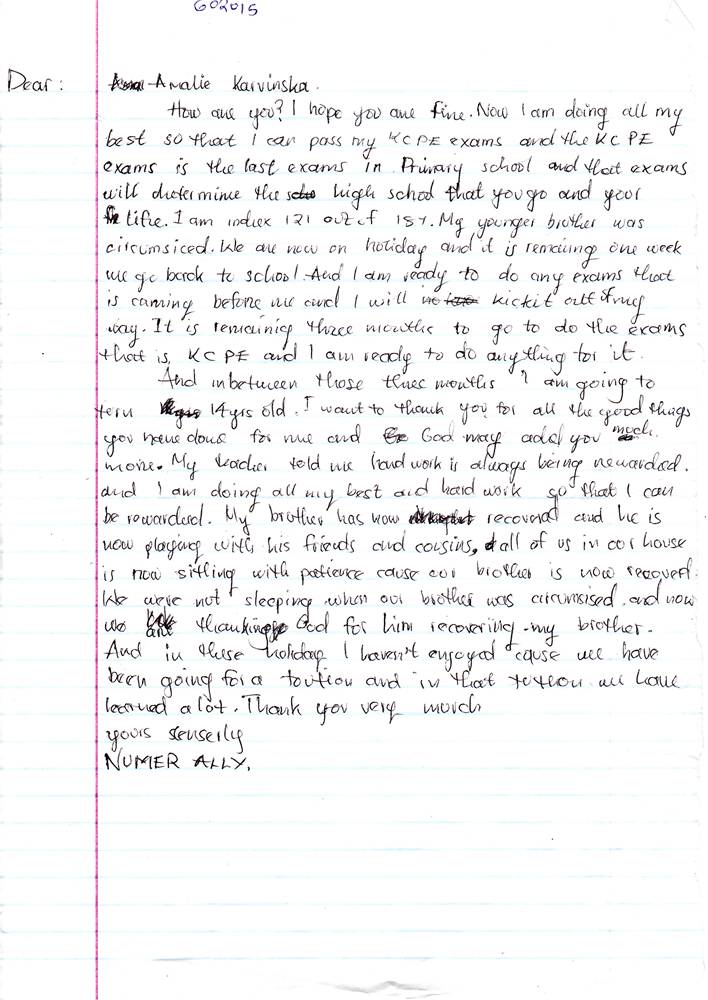 602015
Dear: Amalie Karvinska.
How are you? I hope you are fine. Now I am doing all my
best so that I can pass my KCPE exams and the KCPE
exams is the last exams in Primary school and that exams
will dretermine the high school that you go and your
life. I am index 121 out of 187. My younger brother was
circumsiced. We are now on holiday and it is remaining one week
we go back to school. And I am ready to do any exams that
is caming before me and I will kickit
way. It is remainig three months to go to do the exams
that is, KCPE and I am ready to do anything for it.
And inbetween those three months I am going to
tern 14yrs old. I want to thank you for all the good things
you have done for me and God may add you much
more. My teacher told me hard work is always being rewarded.
and I am doing all my best and hard work so that I can
be rewarded. My brother has now recovered and he is
now playing with his friends and cousins, all of us in our house
is now sitting with patience cause our brother is now recoverd.
We were not sleeping when our brother was circumsised. and now
we are thanking God for him recovering my brother.
And in these holiday I haven't enjoyed cause we have
been going for a toution and in that tution we have
learned a lot. Thank you very much
yours senserly
NUMER ALLY.